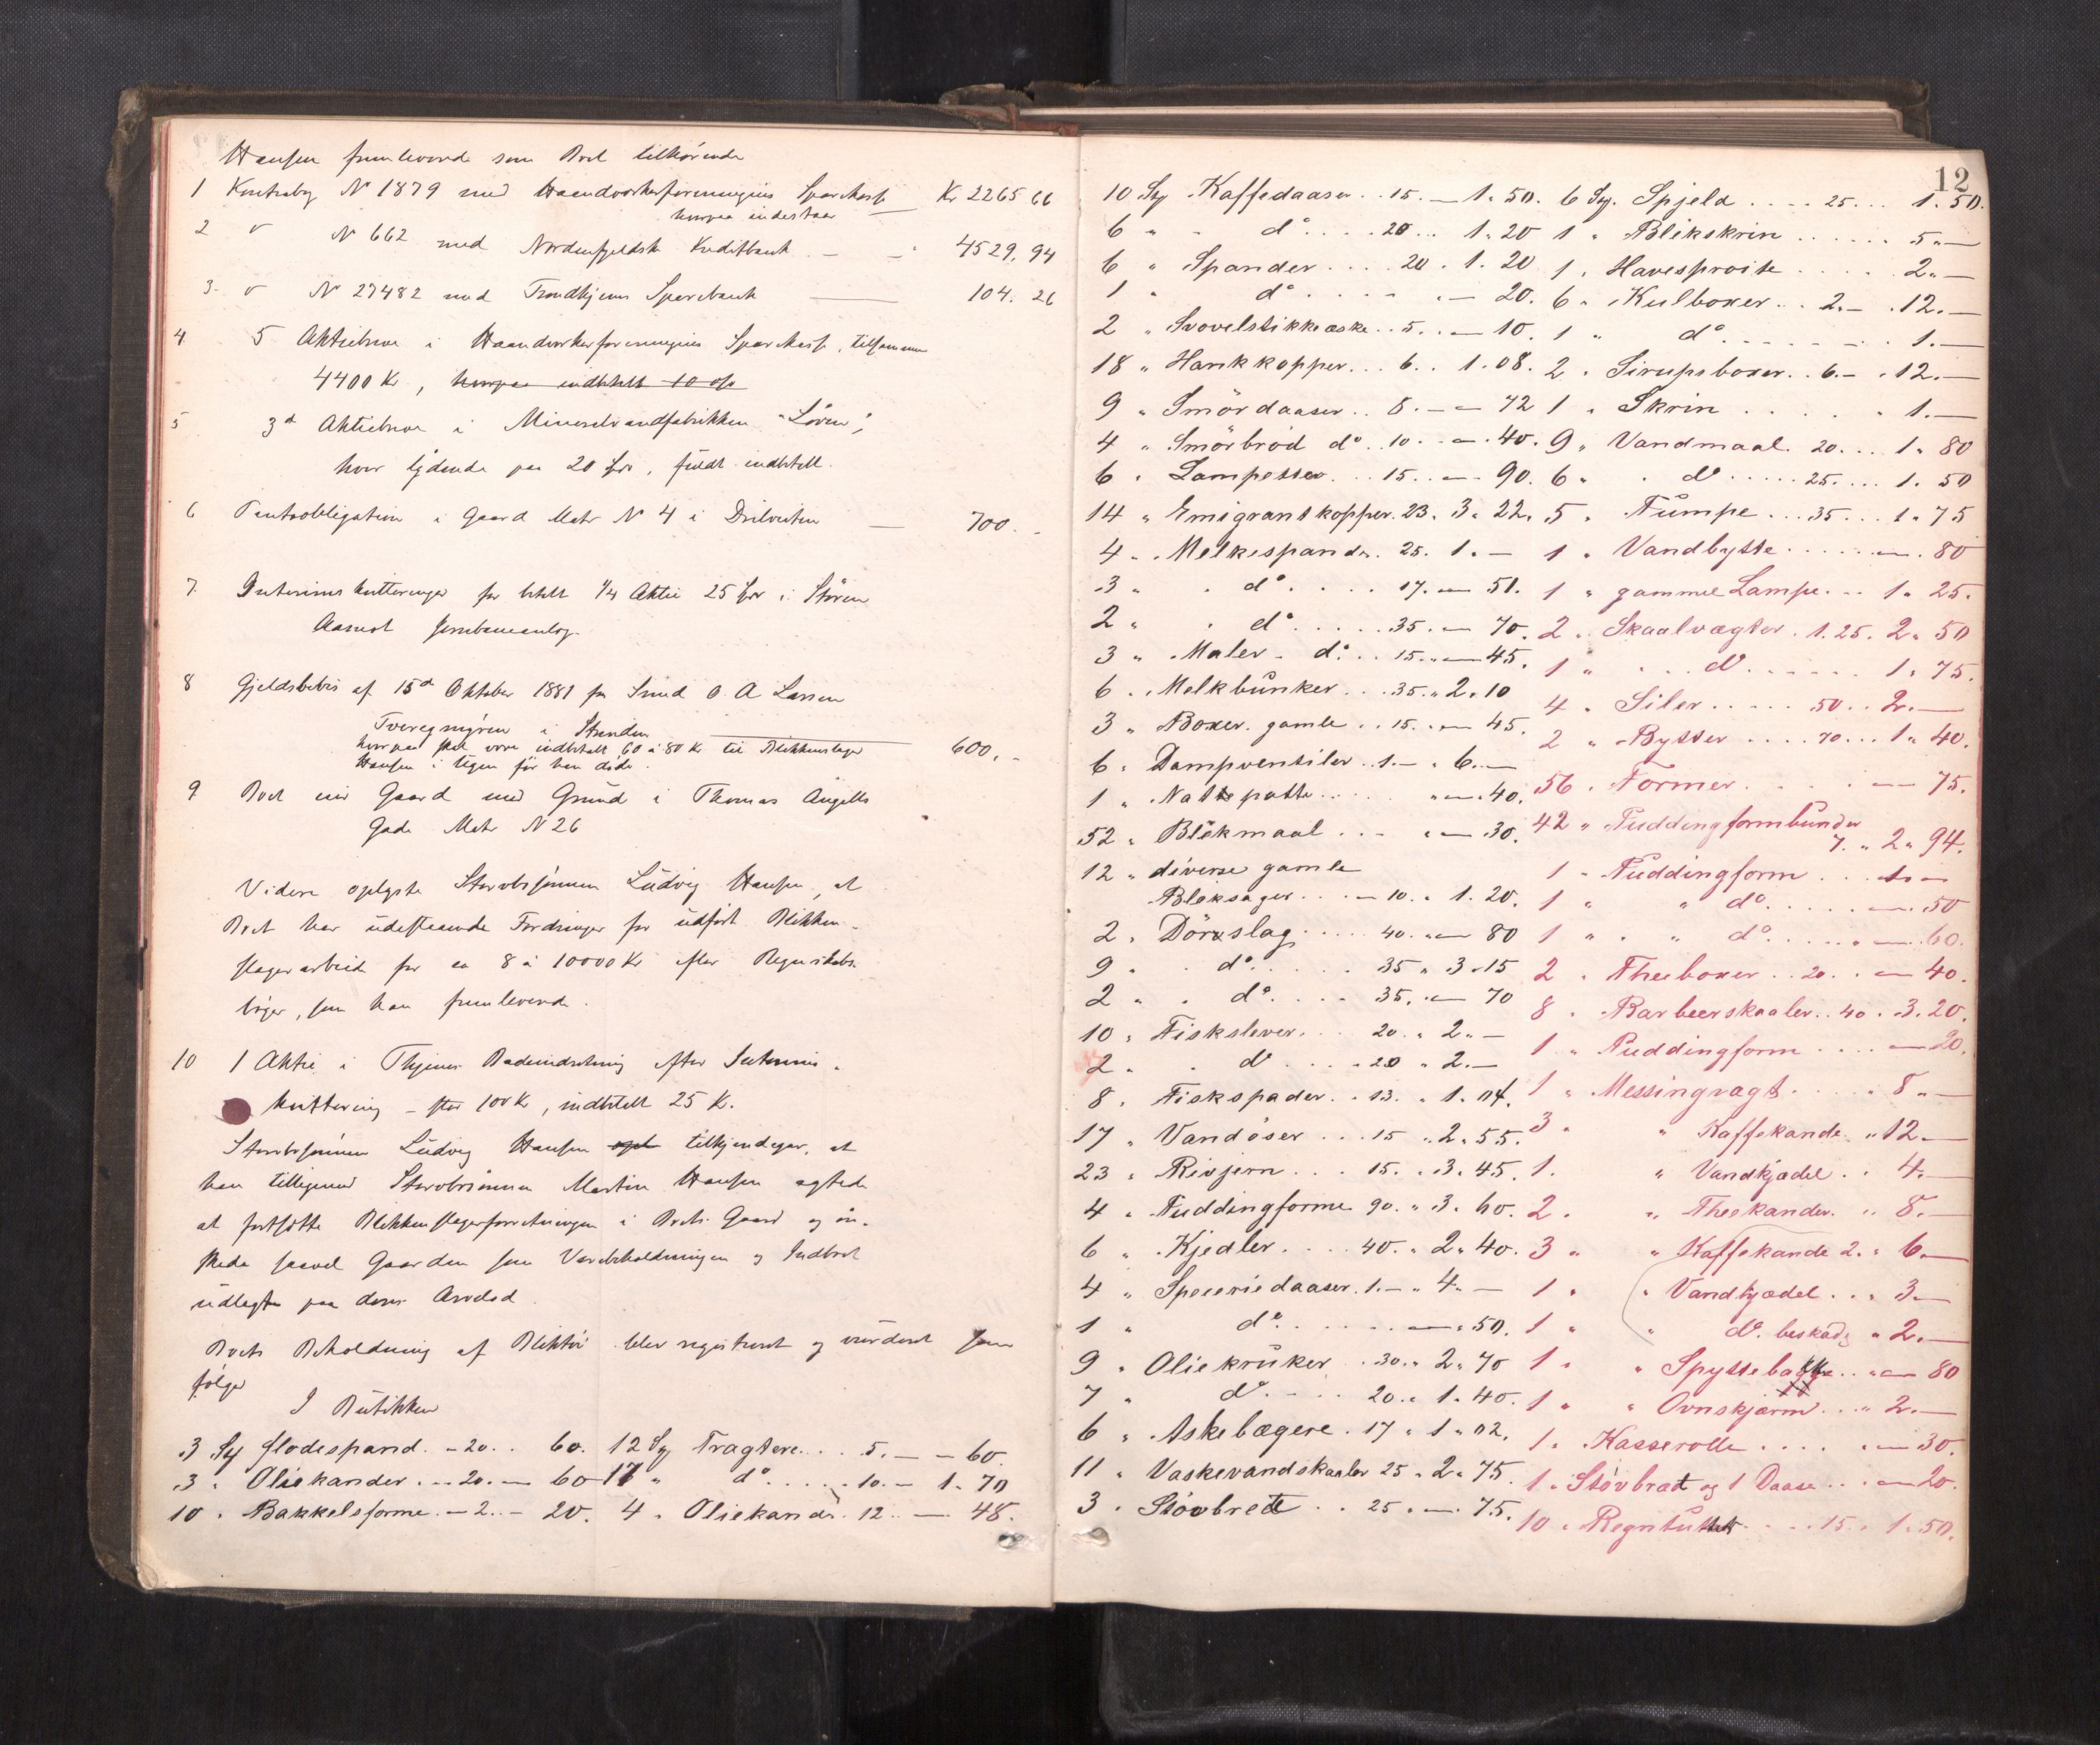 Hansen fremlevende som Boet tilhørende
1 Kontrabog N 1879 med Haandværkerforeningens Sparekasse Kr 2265 66
hvorpaa indestaar
2 " N 662 med Nordenfjeldske Kreditbank - - 4529,94
3. " N 27482 med Trondhjems Sparebank 104.26
4 5 Aktiebreve i Haandværkerforeningens Sparekasse, tilsammen
4400 Kr, hvorpaa indbetalt 10 o/o
5 3de Aktiebreve i Mineralvandfabrikken "Løven",
hver lydende paa 20 Kr, fuldt indbetalt.
6 Pantobligation i Gaard Matr N 4 i Ihlevolden 700.-
7. Interimskvitteringer for betalt 1/4 Aktie 25 Kr i Støren
Aamot Jernbaneanlæg.
8 Gjeldsbevis af 15de Oktober 1881 fra Smed O. A Larsen
i Stranden
hvorpaa skal være indbetalt 60 à 80 Kr til Blikkenslager 600,-
Hansen i legen før han døde.
9 Boet eier Gaard med Grund i Thomas Angells
Gade Matr N 26
Videre oplyste Stervbsønnen Ludvig Hansen, at
Boet har udestaaende Fordringer for udført Blikken-
slagerarbeid for ca 8 à 10000 Kr efter Regnskabs-
bøger, som han fremleverede.
10 1 Aktie i Thjems Badeindretning efter Interims-
kvittering - stor 100 Kr, indbetalt 25 K.
Stervbsønnen Ludvig Hansen opl tilkjendegav, at
han tilligemed Stervbsønnen Martin Hansen agtede
at fortsætte Blikkenslagerforretningen i Boets Gaard og øn-
skede saavel Gaarden som Varebeholdningen og Indboet
udlagte paa deres Arvelod.
Boets Beholdning af Bliktøi blev registreret og vurderet som
følger
I Butikken
3 St Flødespand. - 20.. 60. 12 St Tragtere... 5. - - 60.
3 " Oliekander. - 20. - 60 17 " do..... 10. - 1. 70
10 " Bakkelsforme. - 2. - 20. 4 " Oliekands. 12.. - 48.
12
10 St Kaffedaaser.. 15. - 1. 50. 6 St. Spjeld.... 25... 1. 50.
6 " " do.... 20... 1. 20 1 " Blikskrin...... 5. -
6 " Spander.... 20. 1. 20 1 " Havesprøite..... 2. -
1 " do..... - 20. 6 " Kulboxer.. 2. - . 12. -
2 " Svovelstikkeæske.. 5.. - 10. 1 " do....... 1. -
18 " Hankkopper... 6.. 1. 08. 2 " Sirupsboxer.. 6. - . 12. -
9 " Smørdaaser.. 8. - - 72 1 " Skrin...... 1. -
4 " Smørbrød do. 10.. - . 40. 9 " Vandmaal. 20... 1. 80
6 " Lampetter... 15.. - . 90. 6 " " do..... 25.... 1. 50
14 " Emigrantkopper. 23. 3. 22. 5 " Pumpe... 35... 1. 75
4 " Melkespande. 25. 1. - 1 " Vandbytte..... - . 80
3 " " do.... 17. - 51. 1 " gammel Lampe... 1. 25.
2 " " do..... 35. - 70. 2 " Skaalvægter. 1.25. 2. 50
3 " Maler - do... 15. - 45. 1 " " do..... 1. 75.
6 " Melkbunker... 35. " 2. 10 4 " Siler..... 50.. 2. -
3 " Boxer. gamle.. 15. - 45. 2 " Bytter.... 70... 1. 40.
6 " Dampventiler.. 1. - . 6. - 56 " Former..... - 75.
1 " Nattepotte..... - . 40. 42 " Puddingformbunder
52 " Blikmaal... - - 30. 7. " 2. 94.
12 " diverse gamle 1 " Puddingform... 1. -
Bliksager... - 10. . 1. 20. 1 " " do..... - . 50
2 " Dørslag.... 40. - 80 1 " " do..... - . 60.
9 " " do..... 35 " 3. 15 2 " Theeboxer.. 20.. - 40.
2 " " do.... 35. - 70 8 " Barbeerskaaler.. 40. . 3. 20.
10 " Fiskslever... 20. " 2. - 1 " Puddingform.... - 20.
2 " " do.... 20 " 2. - 1 " Messingvægt..... 8. -
8 " Fiskspader.. 13. . 1. 04. 3 " " Kaffekande. " 12. -
17 " Vandøser... 15 " 2. 55. 1. " Vandkjædel.. 4. -
23 " Rivjern... 15. . 3. 45. 2. " Theekander. " 8. -
4 " Puddingforme 90. " 3. 60. 3 " " Kaffekande 2. " 6. -
6 " Kjedler.... 40. " 2. 40. 1 " " Vandkjædel... 3. -
4 " Speceriedaaser. 1. - " 4. - 1 " " do. beskadg " 2. -
1 " do...... - . 50. 1 " " Spyttebakke... - 80
9 " Oliekruker.. 30. " 2. 70 1 " " Ovnskjærm... " 2. -
7 " do.... 20.. 1. 40. 1. Kasserolle.... - 30.
6 " Askebægere. 17 " 1. 02. 1. Støvbræt og 1 Daase... - 20.
11 " Vaskevandskaaler 25 " 2. 75. 10 " Regntuttet.... 15. . 1. 50.
3 " Støvbrett.. 25. - 75.